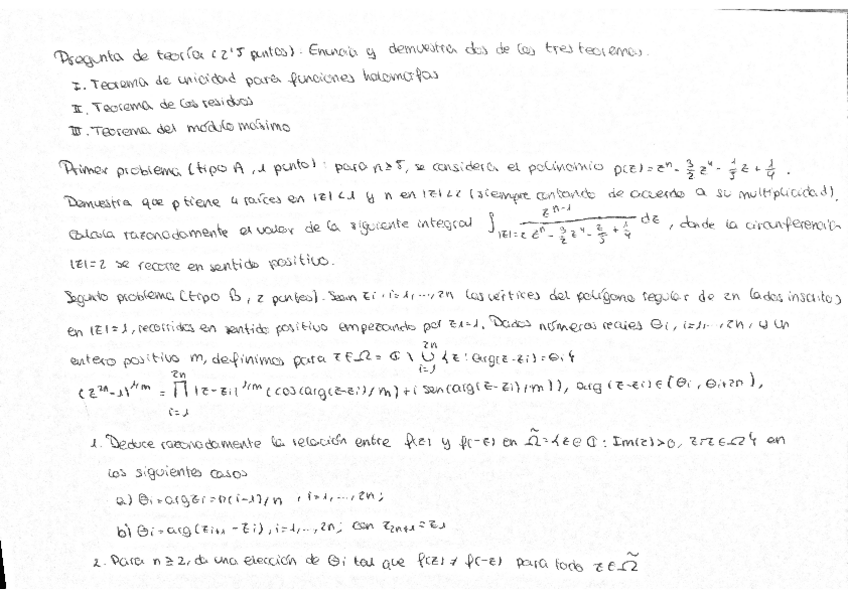 Pregunta de teoría (2'5 puntos). Enuncia y demuestra dos de los tres teoremas.
I. Teorema de unicidad para funciones holomorfas
II. Teorema de los residuos
III. Teorema del modulo maximo
Primer problema (tipo A, 1 punto): para n≥5, se considera el polinomio p(z)=z^n - 3/2 z^4 - 1/5 z + 1/4.
Demuestra que p tiene 4 raíces en |z|<1 y n en |z|<2 (siempre contando de acuerdo a su multiplicidad).
Calcula razonadamente el valor de la siguiente integral ∫_{|z|=2} z^{n-1}/(z^n - 3/2 z^4 - z/5 + 1/4) dz, donde la circunferencia
|z|=2 se recorre en sentido positivo.
Segundo problema (tipo B, 2 puntos). Sean zi, i=1,...,2n los vértices del polígono regular de 2n lados inscritos
en |z|=1, recorridos en sentido positivo empezando por z1=1. Dados números reales θi, i=1,...,2n, y un
entero positivo m, definimos para z∈Ω = ℂ \ ∪_{i=1}^{2n} {z: arg(z-zi)=θi}
(z^{2n}-1)^{1/m} = ∏_{i=1}^{2n} |z-zi|^{1/m} (cos(arg(z-zi)/m)+i sen(arg(z-zi)/m)), arg(z-zi)∈(θi, θi+2π),
1. Deduce razonadamente la relación entre f(z) y f(-z) en Ω̃={z∈ℂ: Im(z)>0, z,-z∈Ω} en
los siguientes casos
a) θi=arg zi=π(i-1)/n, i=1,...,2n;
b) θi=arg(zi+1 - zi), i=1,...,2n; con z2n+1=z1
2. Para n≥2, da una elección de θi tal que f(z) ≠ f(-z) para todo z∈Ω̃